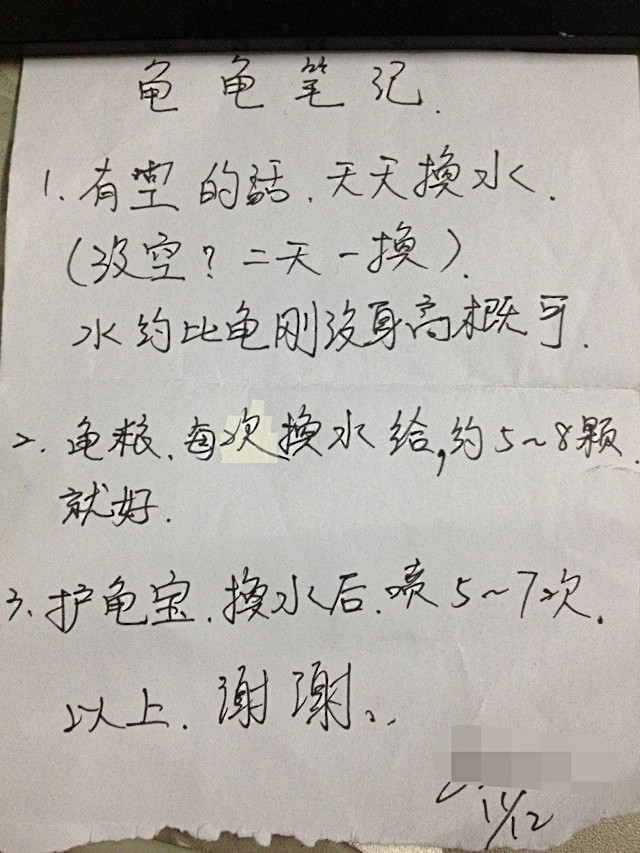 龟龟笔记.
1. 有空的話.天天換水.
(没空?二天一換).
水约比龟刚没身高概可.
2. 龟粮.每次換水给,约5~8颗.
就好.
3. 护龟宝.換水后.喷5~7次.
以上.谢谢..
11/12